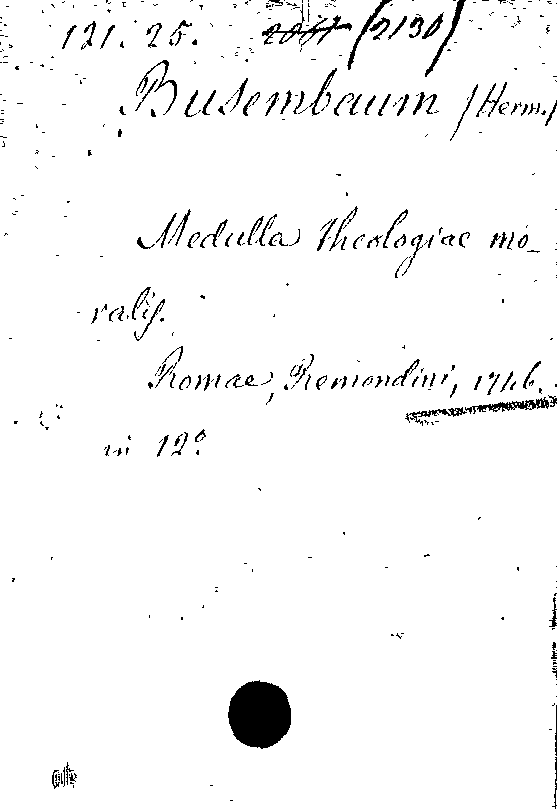 121. 25. 2061 (2130)
Busembaum /Herm./
Medulla Theologiae mo-
ralis.
Romae, Remondini, 1746.
in 12º